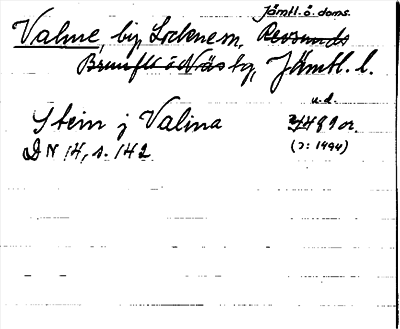 Jämtl. ö. doms.
Valne, by, Lockne sn, Revsunds
Brunflo o Näs tg, Jämtl. l.
u.d.
Stein j Valina 1489 or.
DN 14, s. 142 (ɔ: 1494)